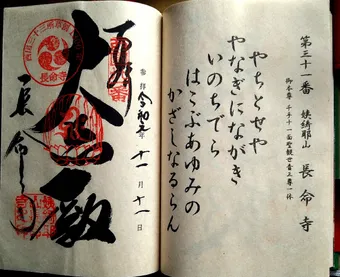 第三十一番 姨綺耶山 長命寺
御本尊 千手十一面聖観世音三尊一体
やちとせや
やなぎにながき
いのちでら
はこぶあゆみの
かざしなるらん
奉拝 令和元年十一月十一日
大悲殿
長命寺